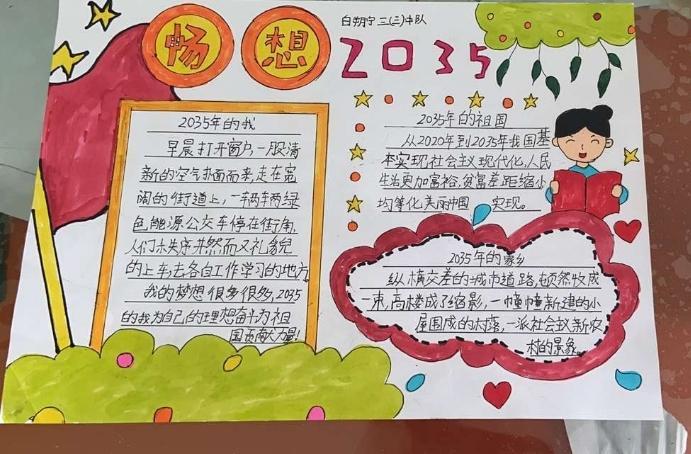 畅想2035
白明宁 三(三)中队
2035年的我
早晨打开窗户,一股清
新的空气扑面而来,走在宽
阔的街道上,一辆辆绿
色能源公交车停在街角,
人们秩序井然而又礼貌
的上车,去各自工作学习的地方,
我的梦想很多很多,2035
的我为自己的理想奋斗为祖
国贡献力量!
2035年的祖国
从2020年到2035年我国基
本实现社会主义现代化,人民
生活更加富裕,贫富差距缩小
均等化,美丽中国 实现。
2035年的家乡
纵横交差的城市道路,顿然收成
一束,高楼成了缩影,一幢幢新建的小
屋围成的村落,一派社会主义新农
村的景象。